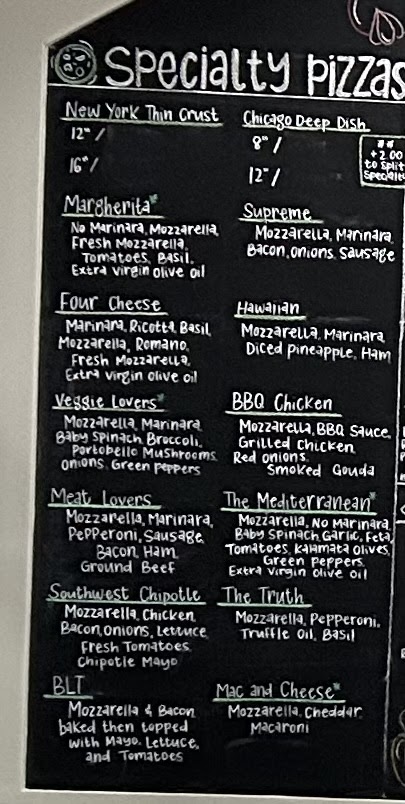 Specialty Pizzas
New York Thin Crust
12" /
16" /
Chicago Deep Dish
8" /
12" /
**
+2.00
to split
Specialty
Margherita*
No Marinara, Mozzarella,
Fresh Mozzarella,
Tomatoes, Basil,
Extra virgin olive oil
Supreme
Mozzarella, Marinara,
Bacon, Onions, Sausage
Four Cheese
Marinara, Ricotta, Basil,
Mozzarella, Romano,
Fresh Mozzarella,
Extra virgin olive oil
Hawaiian
Mozzarella, Marinara,
Diced Pineapple, Ham
Veggie Lovers*
Mozzarella, Marinara,
Baby Spinach, Broccoli,
Portobello Mushrooms,
Onions, Green Peppers
BBQ Chicken
Mozzarella, BBQ Sauce,
Grilled Chicken,
Red Onions,
Smoked Gouda
Meat Lovers
Mozzarella, Marinara,
Pepperoni, Sausage,
Bacon, Ham,
Ground Beef
The Mediterranean*
Mozzarella, No Marinara,
Baby Spinach, Garlic, Feta,
Tomatoes, Kalamata Olives,
Green Peppers,
Extra Virgin olive oil
Southwest Chipotle
Mozzarella, Chicken,
Bacon, Onions, Lettuce
Fresh Tomatoes,
Chipotle Mayo
The Truth
Mozzarella, Pepperoni,
Truffle Oil, Basil
BLT
Mozzarella & Bacon
baked then topped
with Mayo, Lettuce,
and Tomatoes
Mac and Cheese*
Mozzarella, Cheddar,
Macaroni